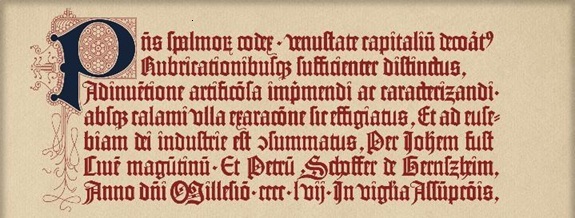 Pñs spalmoꝝ codex · venustate capitaliũ decoꝛatꝰ
Rubricationibusqꝫ sufficienter distinctus,
Adinuẽtione artificõsa imp̃mendi ac caracterizandi ·
absqꝫ calami vlla exaracõne sic effigiatus, Et ad euse⸗
biam dei industrie est ↄsummatus, Per Johẽm fust
Ciuẽ magũtinũ · Et Petrũ Schoffer de Gernszheim,
Anno dñi Millesiõ · cccc · lvij · In vigĩlia Assũpcõis,